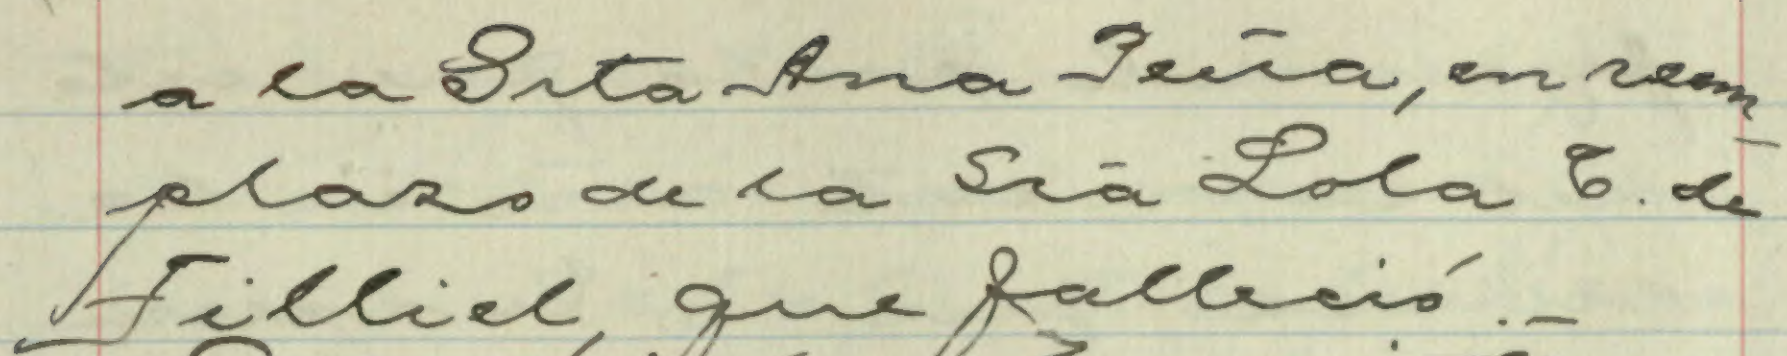 a la Srta Ana Peña, en reem-
plazo de la Sra Lola T. de
Filliel, que falleció.-